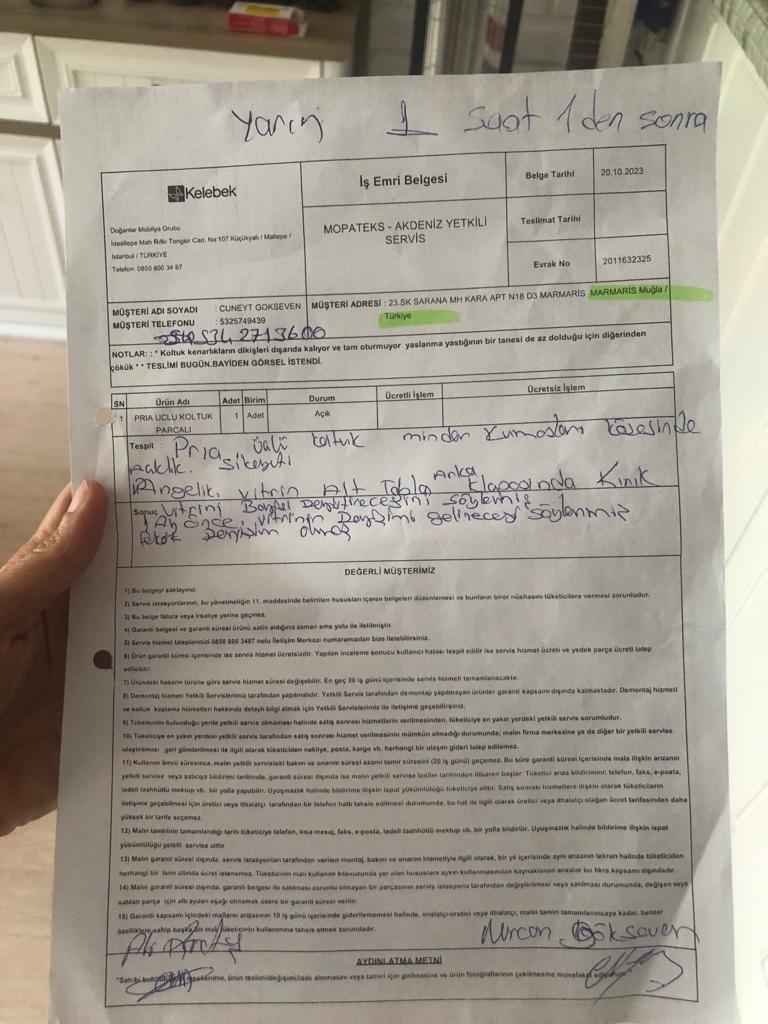 Yarın 1 saat 1 den sonra
Kelebek
Doğanlar Mobilya Grubu
İdealtepe Mah Rıfkı Tongsir Cad. No:107 Küçükyalı / Maltepe /
İstanbul / TÜRKİYE
Telefon: 0850 800 34 87
İş Emri Belgesi
MOPATEKS - AKDENİZ YETKİLİ
SERVİS
Belge Tarihi 20.10.2023
Teslimat Tarihi
Evrak No 2011632325
MÜŞTERİ ADI SOYADI : CUNEYT GOKSEVEN
MÜŞTERİ TELEFONU : 5325749439
534 2713600
MÜŞTERİ ADRESİ : 23.SK SARANA MH KARA APT N18 D3 MARMARİS MARMARİS Muğla /
Türkiye
NOTLAR: : * Koltuk kenarlıkların dikişleri dışarıda kalıyor ve tam oturmuyor yaslanma yastığının bir tanesi de az dolduğu için diğerinden
çökük * * TESLİMİ BUGÜN.BAYİDEN GÖRSEL İSTENDİ.
SN Ürün Adı Adet Birim Durum Ücretli İşlem Ücretsiz İşlem
1 PRIA UCLU KOLTUK 1 Adet Açık
PARCALI
Tespit : Pria üçlü koltuk minder kumaşları köşesinde
Açıklık. Şikayeti
Angelik vitrin Alt Tabla Arka klapasında Kırık
Sonuç Vitrini Bayisi Değiştireceğini söylemiş
1 Ay önce, vitrinin Değişimi gelirecesi söylenmiş
fakat Değişim olmaz
DEĞERLİ MÜŞTERİMİZ
1) Bu belgeyi saklayınız.
2) Servis istasyonlarının, bu yönetmeliğin 11. maddesinde belirtilen hususları içeren belgeleri düzenlemesi ve bunların birer nüshasını tüketicilere vermesi zorunludur.
3) Bu belge fatura veya irsaliye yerine geçmez.
4) Garanti belgesi ve garanti süresi ürünü satın aldığınız zaman sms yolu ile iletilmiştir.
5) Servis hizmet taleplerinizi 0850 800 3487 nolu İletişim Merkezi numaramızdan bize iletebilirsiniz.
6) Ürün garanti süresi içerisinde ise servis hizmet ücretsizdir. Yapılan inceleme sonucu kullanıcı hatası tespit edilir ise servis hizmet ücreti ve yedek parça ücreti talep
edilebilir.
7) Üründeki hasarın türüne göre servis hizmet süresi değişebilir. En geç 20 iş günü içerisinde servis hizmeti tamamlanacaktır.
8) Demontaj hizmeti Yetkili Servislerimiz tarafından yapılmalıdır. Yetkili Servis tarafından demontajı yapılmayan ürünler garanti kapsamı dışında kalmaktadır. Demontaj hizmeti
ve koltuk kaplama hizmetleri hakkında detaylı bilgi almak için Yetkili Servislerimiz ile iletişime geçebilirsiniz.
9) Tüketicinin bulunduğu yerde yetkili servis olmaması halinde satış sonrası hizmetlerin verilmesinden, tüketiciye en yakın yerdeki yetkili servis sorumludur.
10) Tüketiciye en yakın yerdeki yetkili servis tarafından satış sonrası hizmet verilmesinin mümkün olmadığı durumunda; malın firma merkezine ya da diğer bir yetkili servise
ulaştırılması geri gönderilmesi ile ilgili olarak tüketiciden nakliye, posta, kargo vb. herhangi bir ulaşım gideri talep edilemez.
11) Kullanım ömrü süresince, malın yetkili servisteki bakım ve onarım süresi azami tamir süresini (20 iş günü) geçemez. Bu süre garanti süresi içerisinde mala ilişkin arızanın
yetkili servise veya satıcıya bildirimi tarihinde, garanti süresi dışında ise malın yetkili servise teslim tarihinden itibaren başlar. Tüketici arıza bildirimini; telefon, faks, e-posta,
iadeli taahhütlü mektup vb. bir yolla yapabilir. Uyuşmazlık halinde bildirime ilişkin ispat yükümlülüğü tüketiciye aittir. Satış sonrası hizmetlere ilişkin olarak tüketicilerin
iletişime geçebilmesi için üretici veya ithalatçı tarafından bir telefon hattı tahsis edilmesi durumunda, bu hat ile ilgili olarak üretici veya ithalatçı olağan ücret tarifesinden daha
yüksek bir tarife seçemez.
12) Malın tamirinin tamamlandığı tarih tüketiciye telefon, kısa mesaj, faks, e-posta, iadeli taahhütlü mektup vb. bir yolla bildirilir. Uyuşmazlık halinde bildirime ilişkin ispat
yükümlülüğü yetkili servise aittir
13) Malın garanti süresi dışında, servis istasyonları tarafından verilen montaj, bakım ve onarım hizmetiyle ilgili olarak, bir yıl içerisinde aynı arızanın tekrarı halinde tüketiciden
herhangi bir isim altında ücret istenemez. Tüketicinin malı kullanım kılavuzunda yer alan hususlara aykırı kullanmasından kaynaklanan arızalar bu fıkra kapsamı dışındadır.
14) Malın garanti süresi dışında, garanti belgesi ile satılması zorunlu olmayan bir parçasının servis istasyonu tarafından değiştirilmesi veya satılması durumunda, değişen veya
satılan parça için altı aydan aşağı olmamak üzere bir garanti süresi verilir.
15) Garanti kapsamı içindeki malların arızasının 10 iş günü içerisinde giderilememesi halinde, imalatçı-üretici veya ithalatçı, malın tamiri tamamlanıncaya kadar, benzer
özelliklere sahip başka bir malı tüketicinin kullanımına tahsis etmek zorundadır.
Nurcan Göksever
AYDINLATMA METNİ
ürün teslimi/değişimi/iade alınması veya tamiri için girilmesine ve ürün fotoğraflarının çekilmesine muvafakat